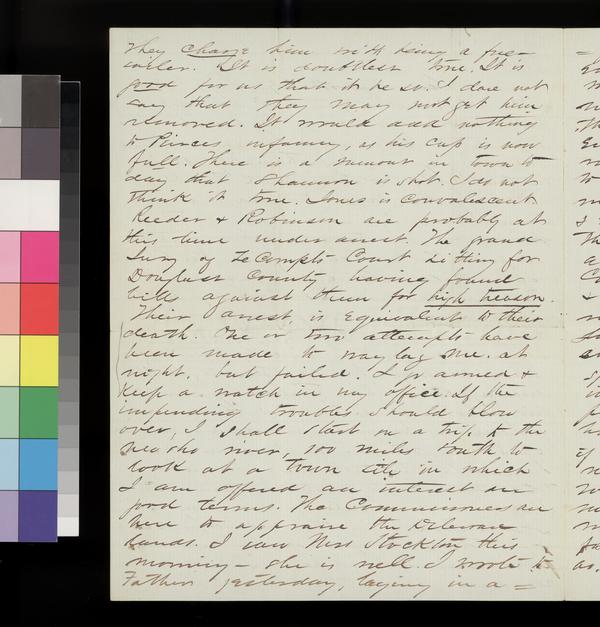 They charge him with being a free-
soiler. It is doubtless true. It is
good for us that it be so. I dare not
say that they may not get him
removed. It would add nothing
to Pierces infamy, as his cup is now
full. There is a rumour in town to
day that Shannon is shot. I do not
think it true. Jones is convalescent
Reeder & Robinson are probably at
this time under arrest. The grand
Jury of LeCompts Court sitting for
Douglass County having found
bills against them for high treason.
Their arrest is equivalent to their
death. One or two attempts have
been made to way lay me at
night, but failed. I go armed &
keep a watch in my office. If the
impending troubles should blow
over, I shall start on a trip to the
Neosho river, 100 miles south to
look at a town site in which
I am offered an interest on
good terms. The Commissioners are
here to appraise the Delaware
lands. I saw Mrs Stockton this
morning - she is well I wrote to
Father yesterday, laying in a =